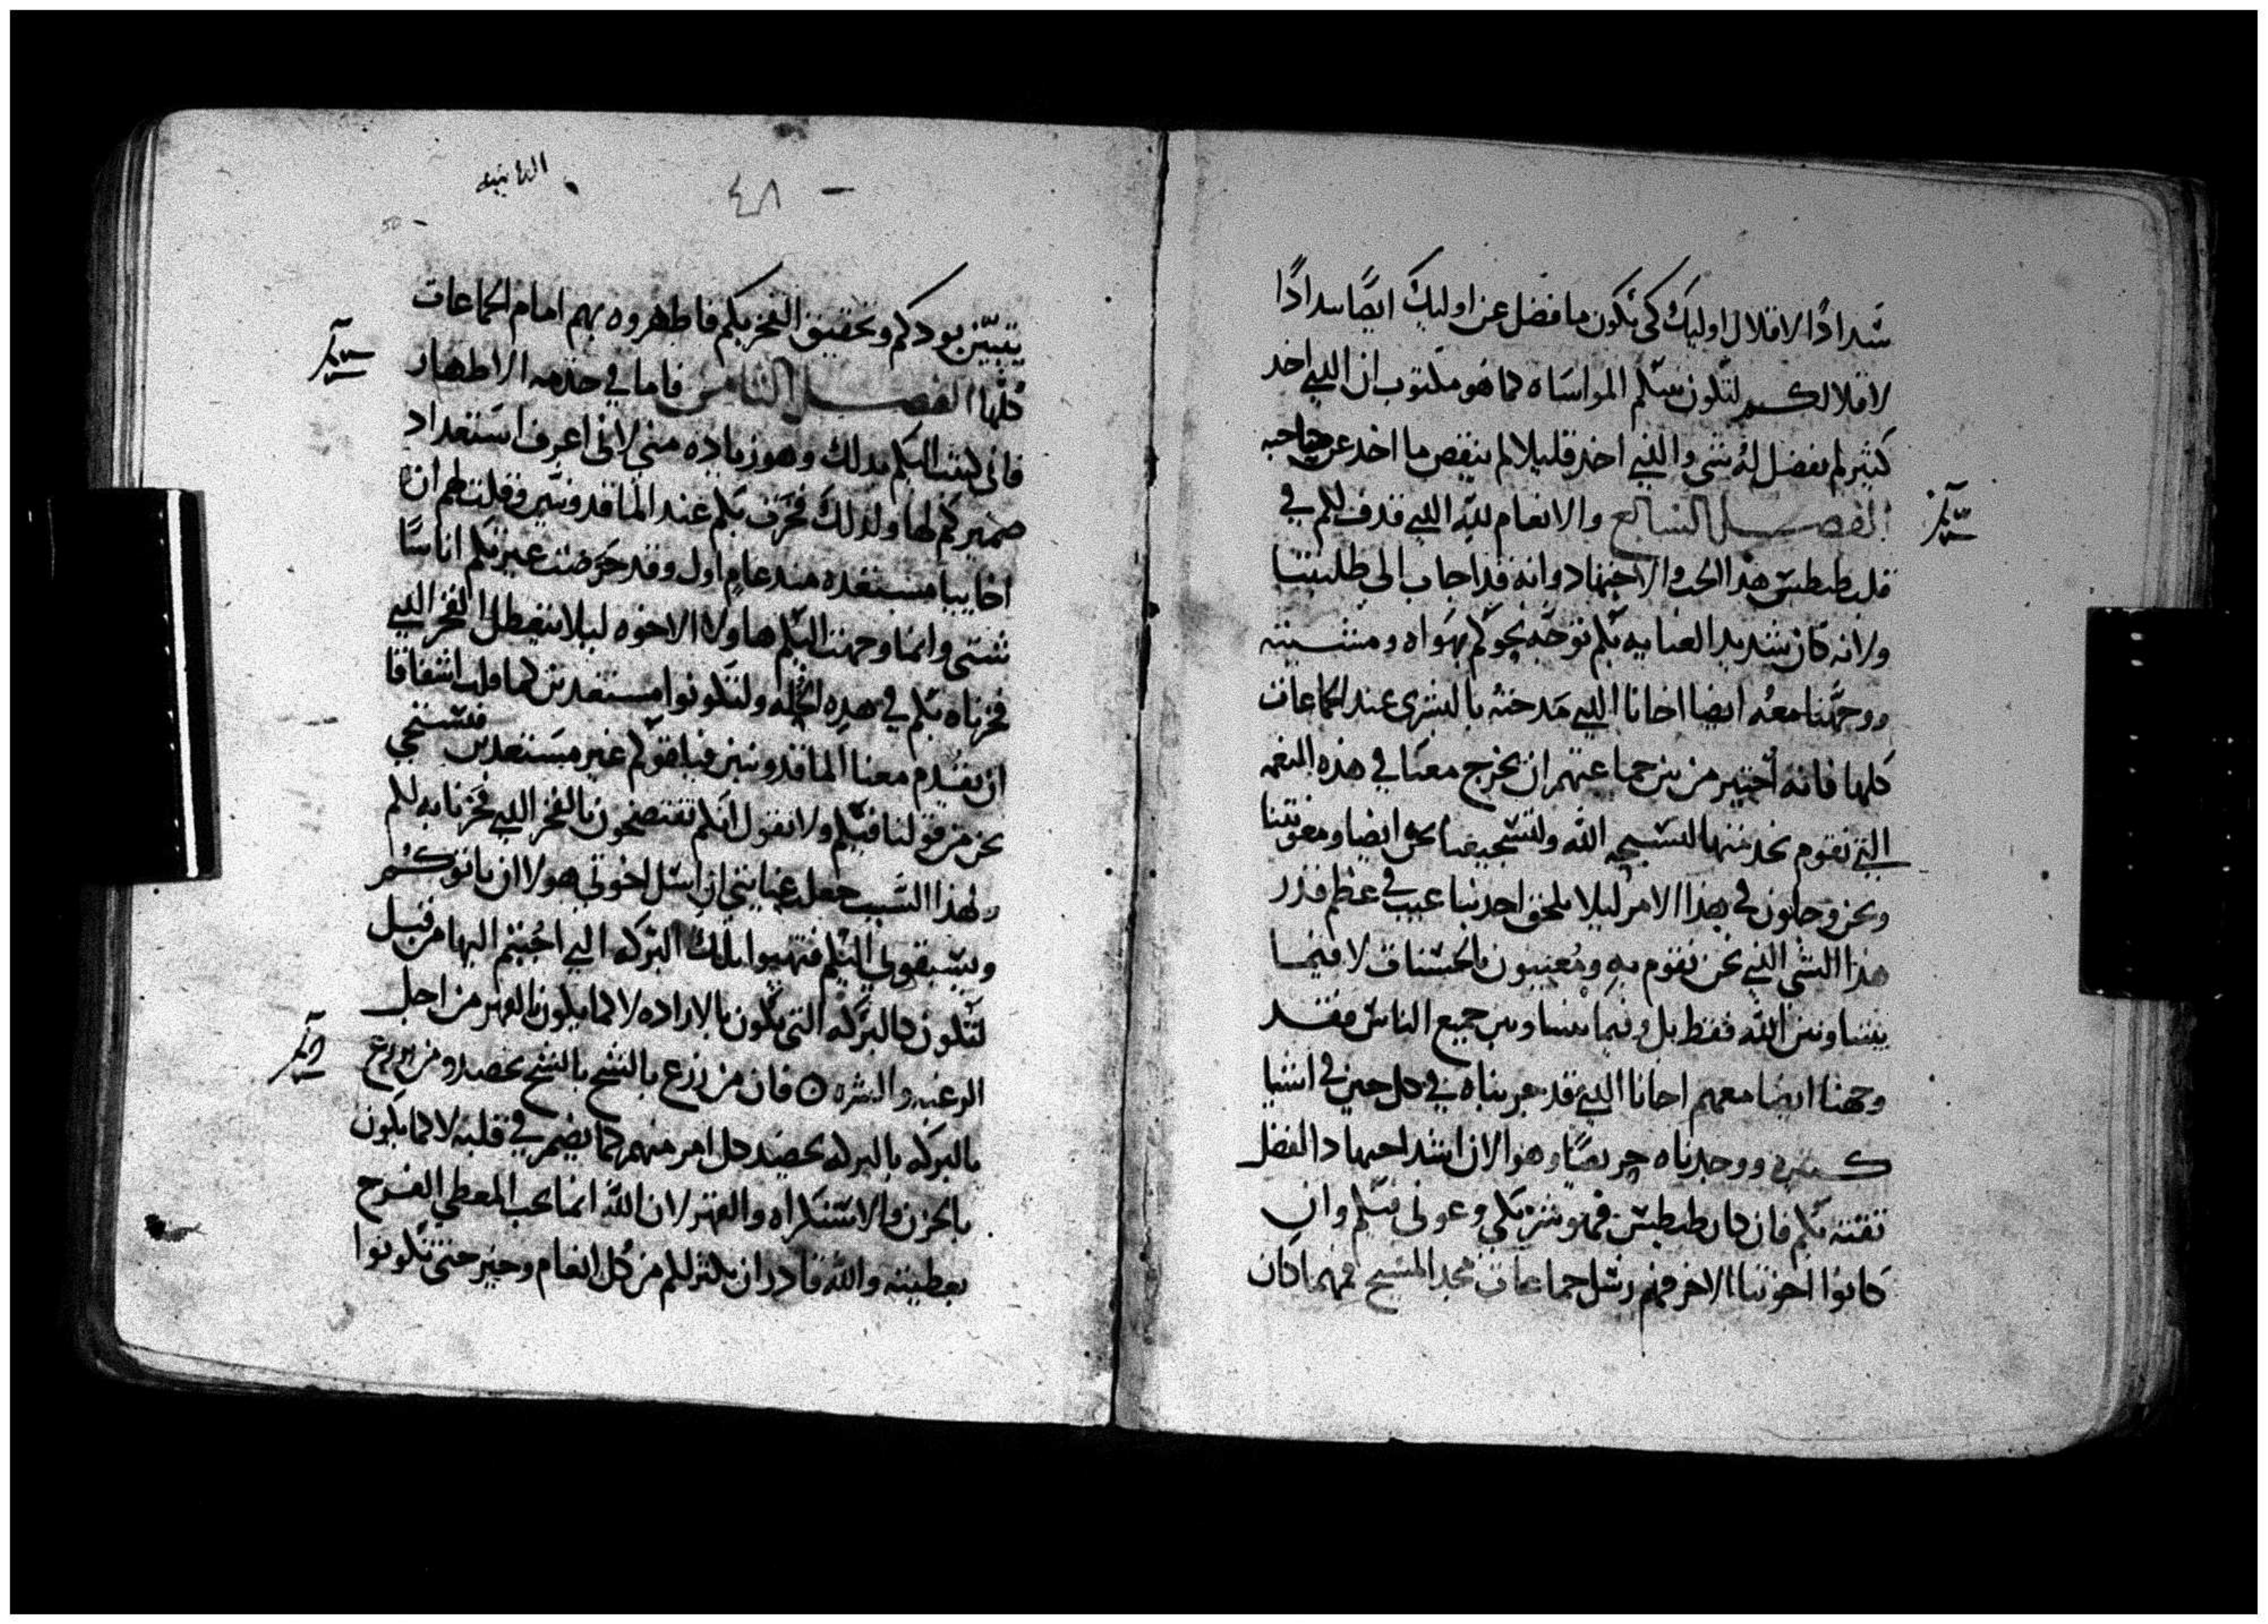 سَدادًا الاقلال اوليك كي يكون ما فضل عن اوليك ايضًا سدادًا
لاقلالكم لتكون بينكم المواساه كما هو مكتوب ان الذي اخد
كثير لم يفضل له شي والذي اخد قليلا لم ينقص ما اخد عن صاحبه
الفصل السابع والانعام لله الذي قدف لكم في
قلب طيطس هذا الحث والاجتهاد وانه قد اجاب الى طلبتنا
ولانه كان شديد العنايه بكم توجه نحوكم بهواه ومشيته
ووجهنا معه ايضا اخانا الذي مدحته بالبشرى عند الجماعات
كلها فانه اختير من بين جماعتهم ان يخرج معنا في هذه النعمه
التي نقوم بخدمتها لتسبحه الله ولتشجيعنا نحن ايضا ومعونتنا
ونحن وجلون في هذا الامر ليلا يلحق احد بنا عيب في عظم قدر
هذا الشي الذي نحن نقوم به ومُعنيون بالحسنات لا فيما
بيننا وبين الله فقط بل وفيما بيننا وبين جميع الناس فقد
وجهنا ايضا معهم اخانا الذي قد جربناه في كل حين في اشيا
كثيره ووجدناه حريصًا وهو الان اشد اجتهادا لفضل
ثقته بكم فان كان طيطس فهو شريكي وعوني فيكم وان
كانوا اخوتنا الاخر فهم رسل جماعات مجد المسيح فمهما كان
الثانيه
٤٨
50
يتبيّن بودكم وتحقيق الفخر بكم فاظهروه بهم امام الجماعات
كلها الفصل الثامن فاما في خدمه الاطهار
فاني كتبت اليكم بدلك وهو زياده مني لاني اعرف استعداد
ضميركم لها ولدلك فخرت بكم عند الماقدونيين وقلت لهم ان
اخاييا مستعده مند عام اول وقد حرضت غيرتكم اناسًا
شتى وانما وجهت اليكم هاولا الاخوه ليلا يتعطل الفخر الذي
فخرناه بكم في هذه الخله ولتكونوا مستعدين كما قلت اشفاقا
ان يقدم معنا الماقدونيين فيلفوكم غير مستعدين فنستحي
نحن من قولنا فيكم ولا نقول انكم تفتضحون بالفخر الذي فخرنا به لكم
ولهذا السبب جعل عنايتي ان اسل اخوتي هولا ان ياتوكم
ويسبقوني اليكم فتهيوا بتلك البركه التي اجبتم اليها من قبل
لتكون كالبركه التي تكون بالاراده لا كما يكون بالقهر من اجل
الرغبه والشره ○ فان من زرع بالشح بالشح يحصد ومن زرع
بالبركه بالبركه يحصد كل امر منهم كما يضمر في قلبه لا كما يكون
بالحزن والاستكراه والقهر لان الله انما يحب المعطي الفرح
بعطيته والله قادر ان يكثر لكم من كل انعام وخير حتى تكونوا